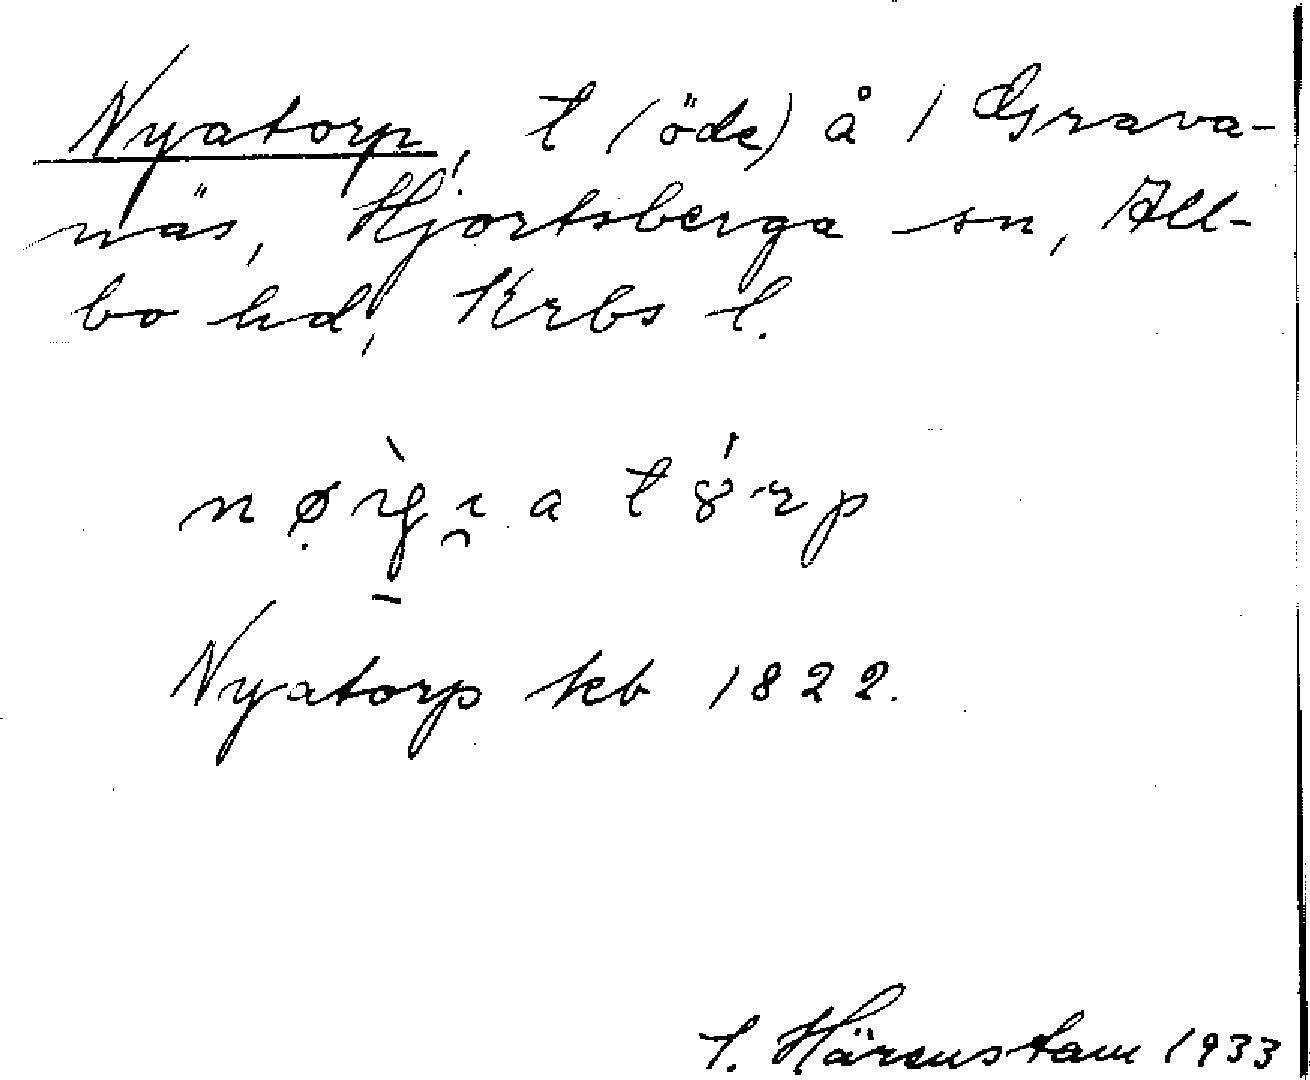 Nyatorp, t (öde) å 1 Grava-
näs, Hjortsberga sn, All-
bo hd, Krbs l.
Nyatorp kb 1822.
Härenstam 1933